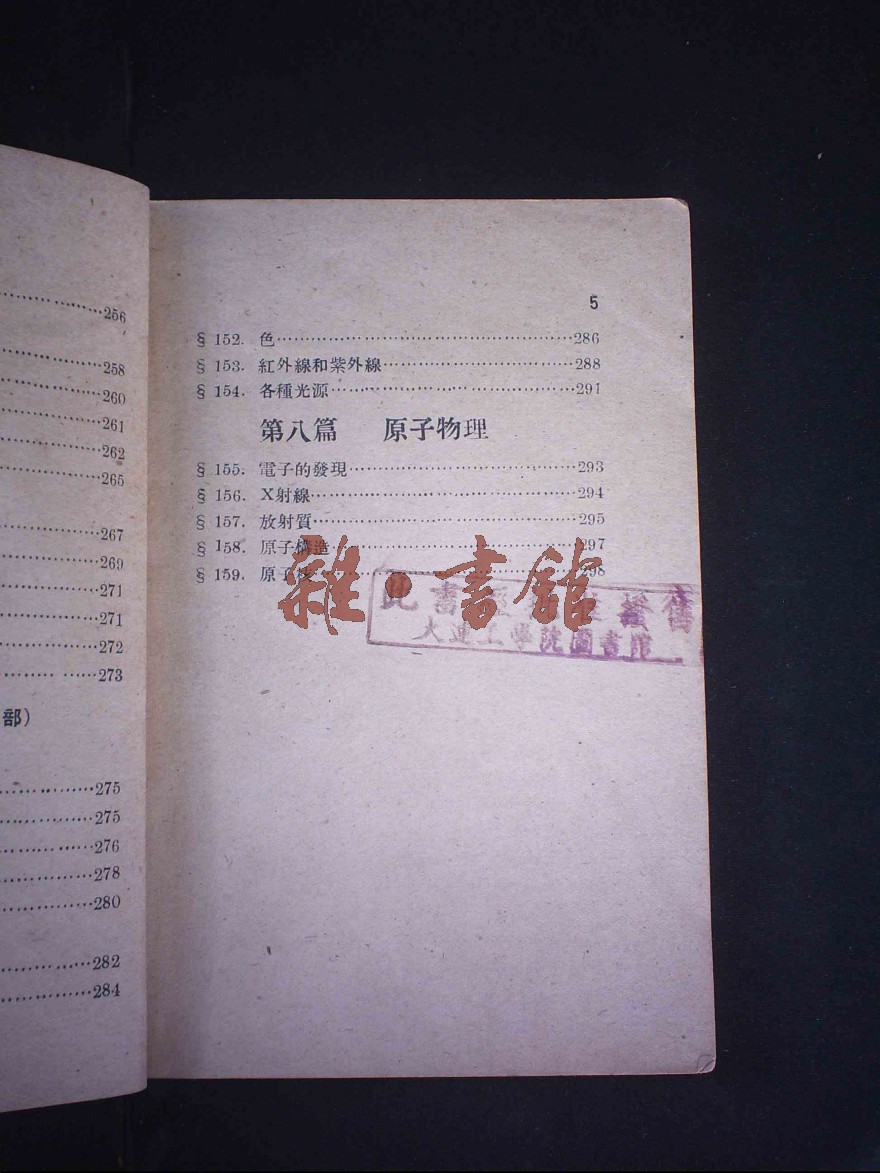 256
258
260
261
262
265
267
269
271
271
272
273
部)
275
275
276
278
280
282
284
5
§ 152. 色 286
§ 153. 紅外線和紫外線 288
§ 154. 各種光源 291
第八篇 原子物理
§ 155. 電子的發現 293
§ 156. X射線 294
§ 157. 放射質 295
§ 158. 原子構造 297
§ 159. 原子核 298
雜·書館
此書
大連工學院圖書館